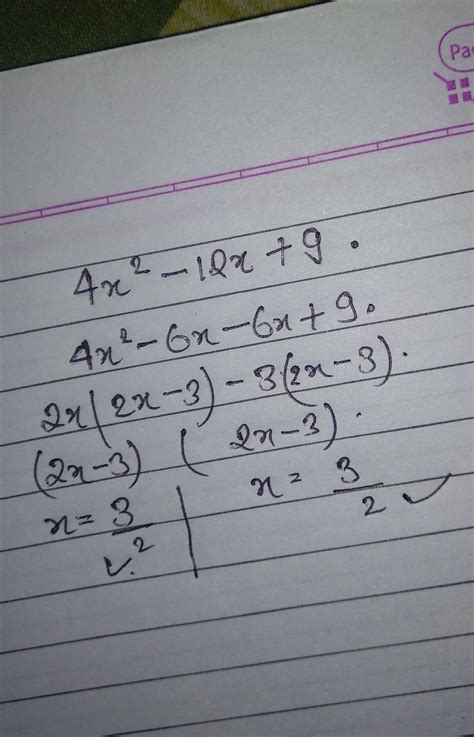 Pa
4x² - 12x + 9.
4x² - 6x - 6x + 9.
2x(2x-3) - 3(2x-3).
(2x-3) (2x-3).
x = 3/2 | x = 3/2 ✓
✓.